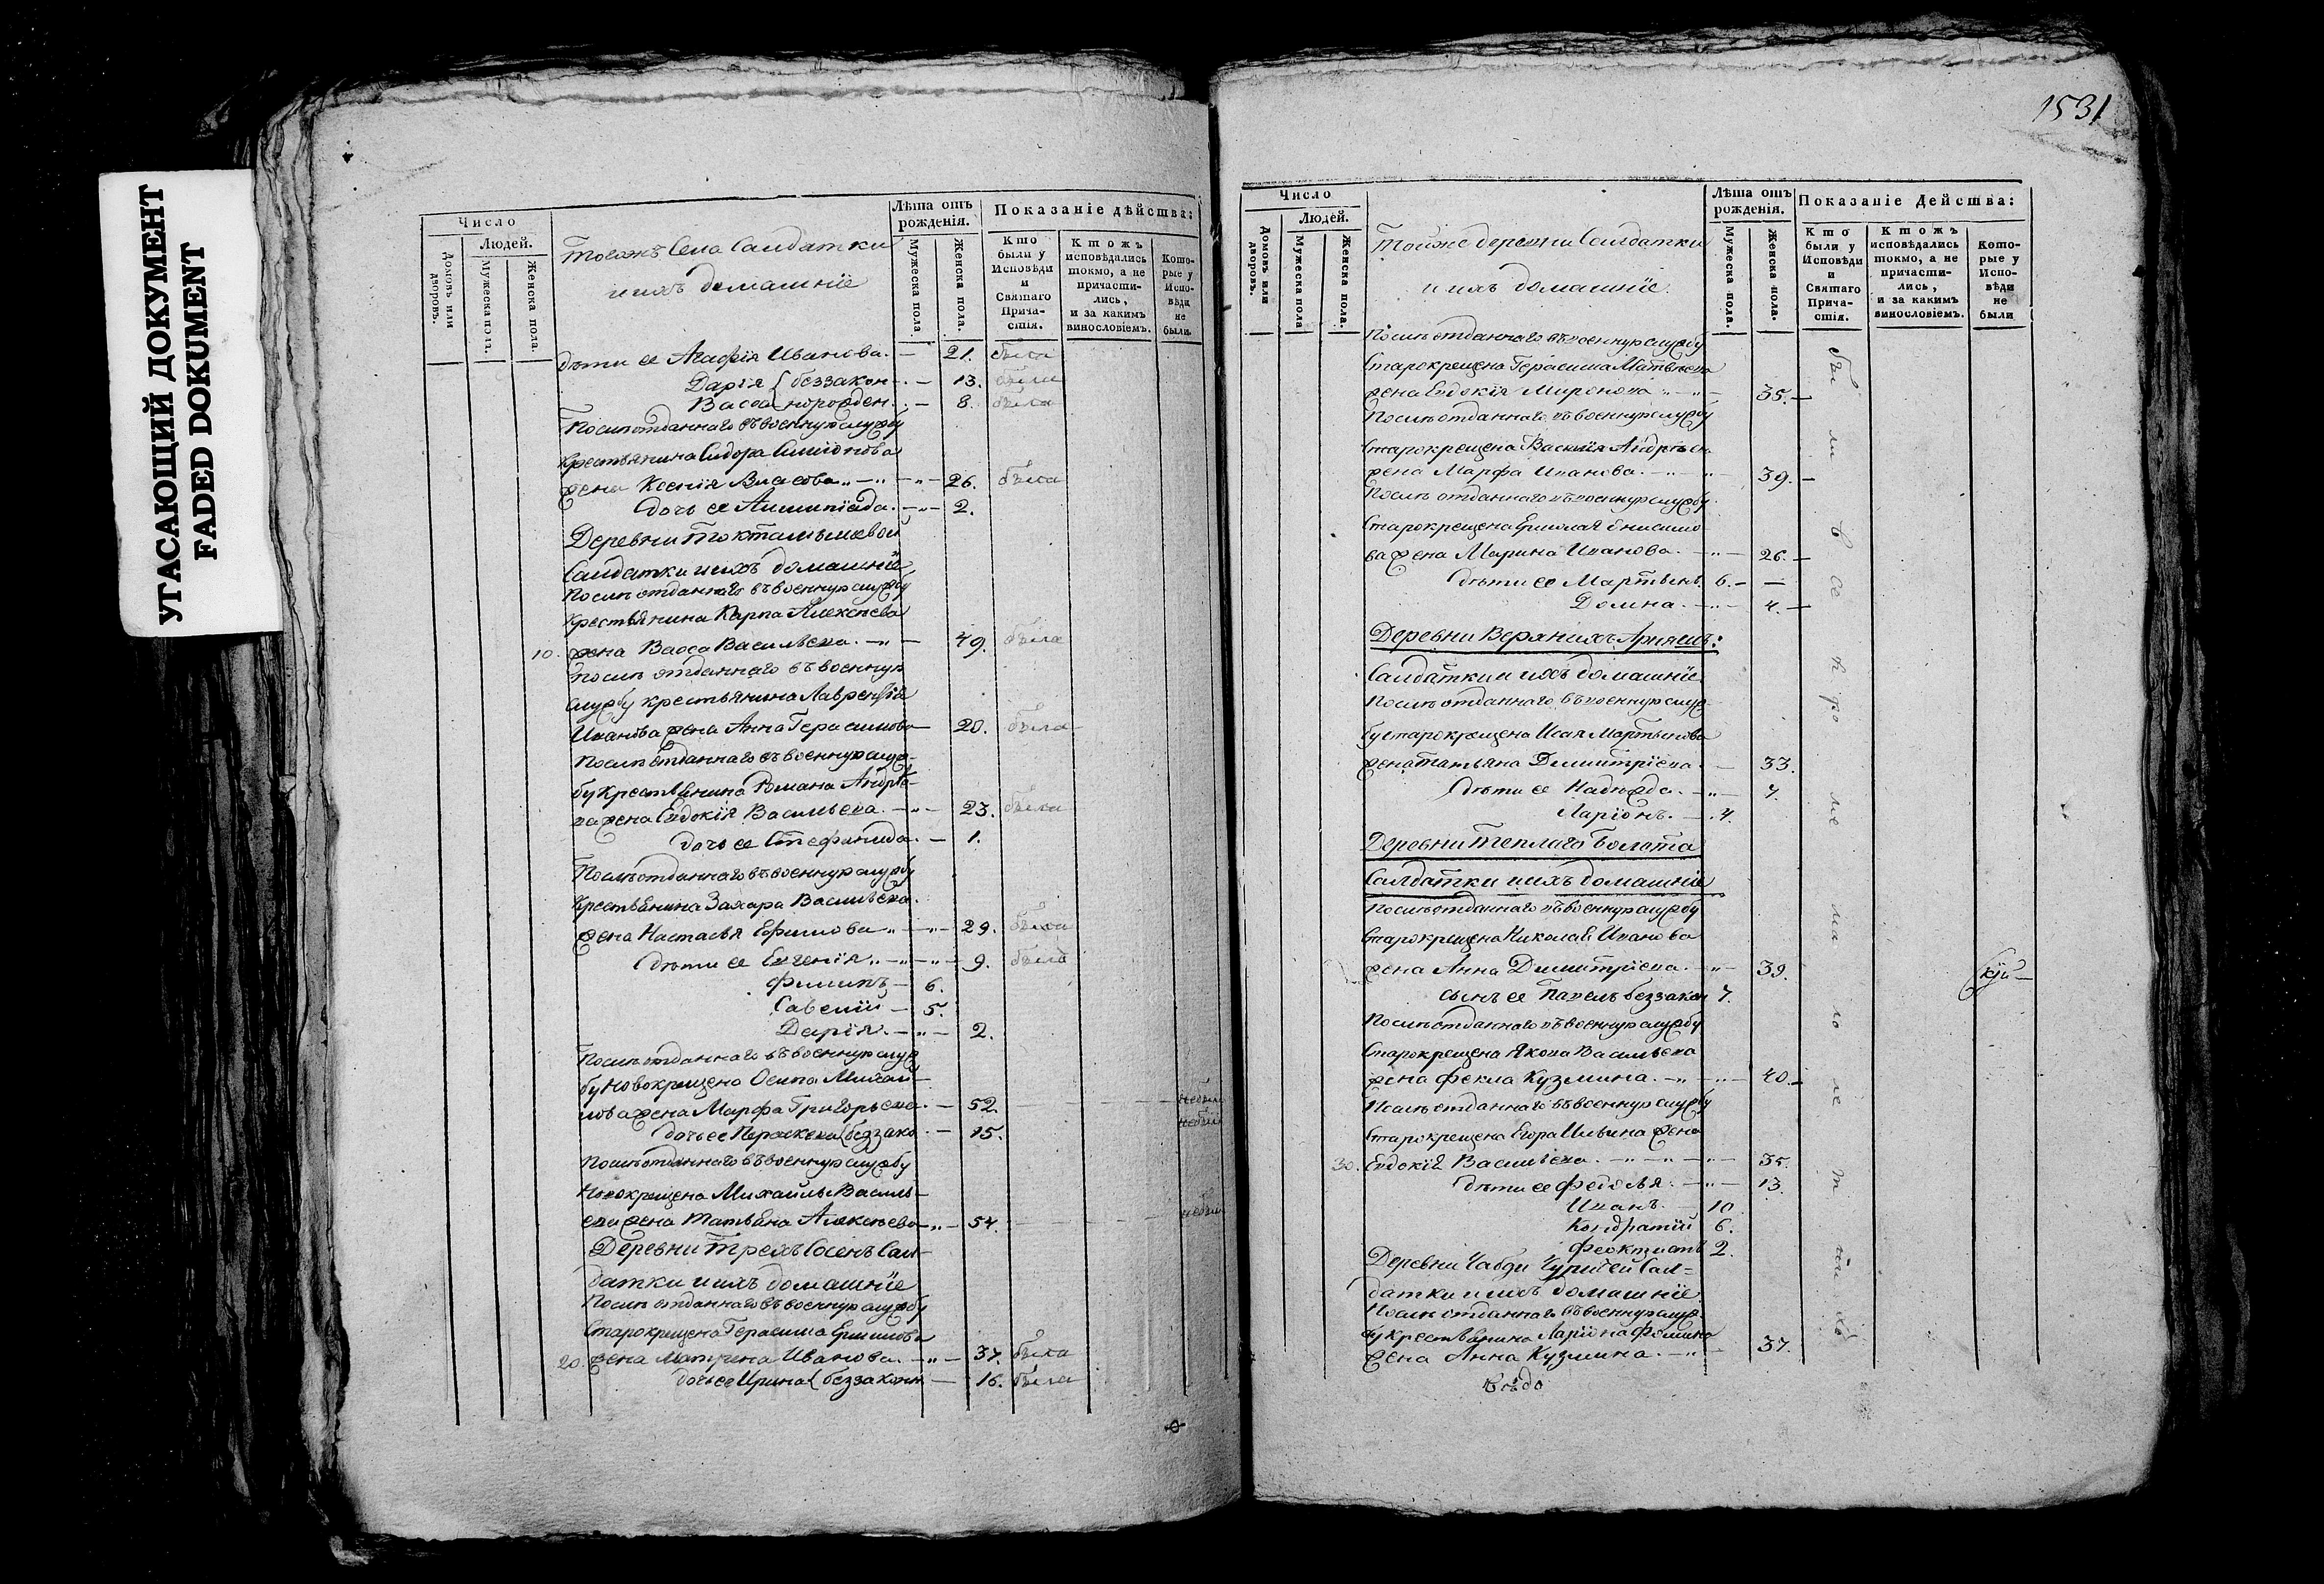 УГАСАЮЩИЙ ДОКУМЕНТ
FADED DOKUMENT
Число
Людей.
Домовъ или дворовъ.
Мужеска пола.
Женска пола.
Тогожъ Села Салдатки
и ихъ домашніе
Лѣта отъ рожденія.
Мужеска пола.
Женска пола.
Показаніе дѣйства:
Кто были у Исповѣди и Святаго Причастія.
Ктожъ исповѣдались токмо, а не причастились, и за какимъ винословіемъ.
Которые у Исповѣди не были.
дѣти ее Агафія Иванова. — 21. была
Дарія { беззакон — 13. была
Васса { норожден. — 8. была
Послѣ отданнаго въ военную службу
крестьянина Сидора Симіонова
жена Ксенія Власова — 26. была
дочь ее Алимпіада. — 2.
Деревни Токтамышевой
Салдатки и ихъ домашніе
Послѣ отданнаго въ военную службу
крестьянина Карпа Алексѣева
10. жена Васса Васильева. — 49. была
Послѣ отданнаго въ военную
службу крестьянина Лаврентія
Иванова жена Анна Герасимова — 20. была
Послѣ отданнаго въ военную служ-
бу крестьянина Романа Андрѣе-
ва жена Евдокія Васильева. — 23. была
дочь ее Стефанида. — 1.
Послѣ отданнаго въ военную службу
крестьянина Захара Васильева.
жена Настасья Ефимова — 29. была
дѣти ее Евгенія — 9. была
Филипъ — 6.
Савелій — 5.
Дарія. — 2.
Послѣ отданнаго въ военную служ
бу новокрещена Осипа Михай-
лова жена Марфа Григорьева. — 52. небыла
дочь ее Параскева { беззако. — 15. небыла
Послѣ отданнаго въ военную службу
Новокрещена Михайлы Василь-
ева жена Татьяна Алексѣева — 54. небыла
Деревни Трехъ Сосенъ Сал-
датки и ихъ домашніе
Послѣ отданнаго въ военную службу
Старокрещена Герасима Ермилова
20. жена Матрена Иванова. — 37. была
дочь ее Ирина { беззаконн — 16. была
1531
Число
Людей.
Домовъ или дворовъ.
Мужеска пола
Женска пола.
Тойже деревни Салдатки
и ихъ домашніе.
Лѣта отъ рожденія.
Мужеска пола.
Женска пола.
Показаніе Действа:
Кто были у Исповѣди и Святаго Причастія.
Ктожъ исповѣдались токмо, а не причастились, и за какимъ винословіемъ.
Которые у Исповѣди не были
Послѣ отданнаго въ военную службу
Старокрещена Герасима Матвѣева
жена Евдокія Миронова — 35. —
Послѣ отданнаго въ военную службу
Старокрещена Василія Андрѣева
жена Марфа Иванова. — 39. —
Послѣ отданнаго въ военную службу
Старокрещена Ермолая Онисимо-
ва жена Марина Иванова. — 26. —
дѣти ее Мартынъ 6. — —
Домна. — 4. —
Деревни Верхнихъ Арняшъ:
Салдатки и ихъ домашніе
Послѣ отданнаго въ военную служ-
бу старокрещена Исая Мартынова
жена Татьяна Димитріева. — 33.
дѣти ее Надежда. — 7.
Ларіонъ. — 4.
Деревни Теплаго Болота
Салдатки и ихъ домашніе
Послѣ отданнаго въ военную службу
Старокрещена Николая Иванова
жена Анна Димитріева. — 39.
сынъ ее Павелъ беззакон 7.
Послѣ отданнаго въ военную службу
Старокрещена Якова Васильева
жена Фекла Кузмина. — 40. —
Послѣ отданнаго въ военную службу
Старокрещена Егора Ильина жена
30. Евдокія Васильева. — 35.
дѣти ее Федосья. — 13.
Иванъ. 10.
Кондратій 6.
Феоктистъ 2.
Деревни Чабди Чурилей Сал-
датки и ихъ домашніе.
Послѣ отданнаго въ военную служ-
бу крестьянина Ларіона Фомина
жена Анна Кузмина. — 37.
бы ли все кро ме ма ло лѣ т ни хъ